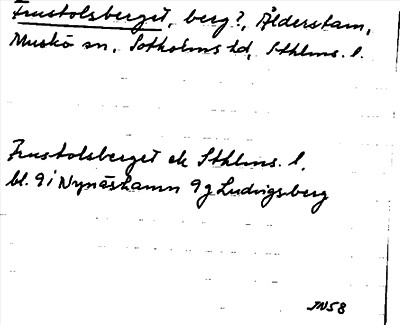 Frustolsberget, berg?, Ålderstam,
Muskö sn, Sotholms hd, Sthlms. l.
Frustolsberget ek Sthlms. l.
bl. 9 i Nynäshamn 9 g Ludvigsberg
JN58